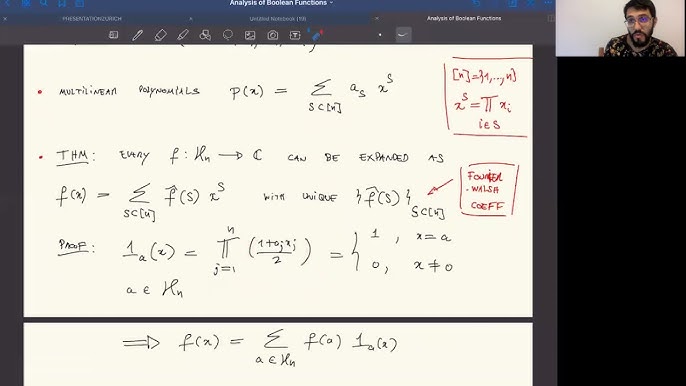 Analysis of Boolean Functions
PRESENTATIONZURICH
Untitled Notebook (19)
Analysis of Boolean Functions
• MULTILINEAR POLYNOMIALS P(x) = ∑_{S⊂[n]} a_S x^S
[n]={1,...,n}
x^S = ∏_{i∈S} x_i
• THM: EVERY f: H_n → ℂ CAN BE EXPANDED AS
f(x) = ∑_{S⊂[n]} f̂(S) x^S WITH UNIQUE {f̂(S)}_{S⊂[n]}
FOURIER
-WALSH
COEFF
PROOF: 1_a(x) = ∏_{j=1}^{n} ((1+a_j x_j)/2) = { 1, x=a
0, x≠a
a ∈ H_n
⟹ f(x) = ∑_{a∈H_n} f(a) 1_a(x)